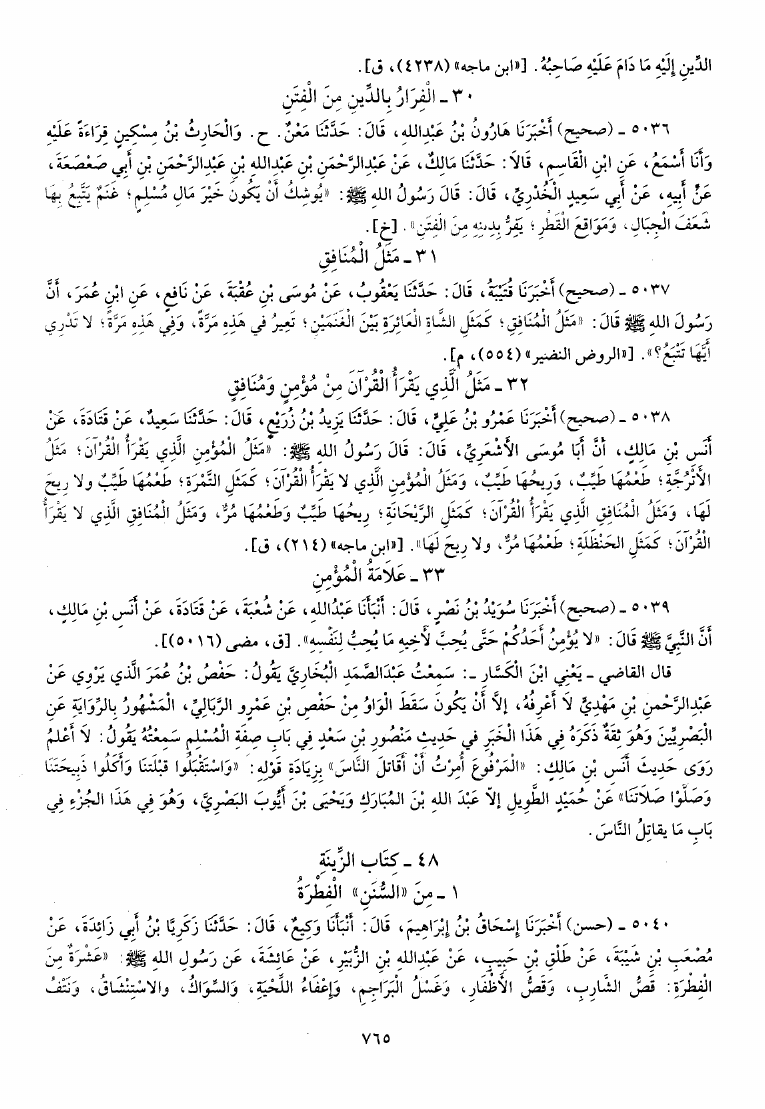 الدِّينِ إِلَيْهِ مَا دَامَ عَلَيْهِ صَاحِبُهُ. [«ابن ماجه» (٤٢٣٨)، ق].
٣٠ ـ الْفِرَارُ بِالدِّينِ مِنَ الْفِتَنِ
٥٠٣٦ ـ (صحيح) أَخْبَرَنَا هَارُونُ بْنُ عَبْدِاللهِ، قَالَ: حَدَّثَنَا مَعْنٌ. ح. وَالْحَارِثُ بْنُ مِسْكِينٍ قِرَاءَةً عَلَيْهِ
وَأَنَا أَسْمَعُ، عَنِ ابْنِ الْقَاسِمِ، قَالَا: حَدَّثَنَا مَالِكٌ، عَنْ عَبْدِالرَّحْمَنِ بْنِ عَبْدِاللهِ بْنِ عَبْدِالرَّحْمَنِ بْنِ أَبِي صَعْصَعَةَ،
عَنْ أَبِيهِ، عَنْ أَبِي سَعِيدٍ الْخُدْرِيِّ، قَالَ: قَالَ رَسُولُ اللهِ ﷺ: «يُوشِكُ أَنْ يَكُونَ خَيْرَ مَالِ مُسْلِمٍ؛ غَنَمٌ يَتَّبِعُ بِهَا
شَعَفَ الْجِبَالِ، وَمَوَاقِعَ الْقَطْرِ؛ يَفِرُّ بِدِينِهِ مِنَ الْفِتَنِ». [خ].
٣١ ـ مَثَلُ الْمُنَافِقِ
٥٠٣٧ ـ (صحيح) أَخْبَرَنَا قُتَيْبَةُ، قَالَ: حَدَّثَنَا يَعْقُوبُ، عَنْ مُوسَى بْنِ عُقْبَةَ، عَنْ نَافِعٍ، عَنِ ابْنِ عُمَرَ، أَنَّ
رَسُولَ اللهِ ﷺ قَالَ: «مَثَلُ الْمُنَافِقِ؛ كَمَثَلِ الشَّاةِ الْعَائِرَةِ بَيْنَ الْغَنَمَيْنِ؛ تَعِيرُ في هَذِهِ مَرَّةً، وَفِي هَذِهِ مَرَّةً؛ لا تَدْرِي
أَيَّهَا تَتْبَعُ؟». [«الروض النضير» (٥٥٤)، م].
٣٢ ـ مَثَلُ الَّذِي يَقْرَأُ الْقُرْآنَ مِنْ مُؤْمِنٍ وَمُنَافِقٍ
٥٠٣٨ ـ (صحيح) أَخْبَرَنَا عَمْرُو بْنُ عَلِيٍّ، قَالَ: حَدَّثَنَا يَزِيدُ بْنُ زُرَيْعٍ، قَالَ: حَدَّثَنَا سَعِيدٌ، عَنْ قَتَادَةَ، عَنْ
أَنَسِ بْنِ مَالِكٍ، أَنَّ أَبَا مُوسَى الأَشْعَرِيَّ، قَالَ: قَالَ رَسُولُ اللهِ ﷺ: «مَثَلُ الْمُؤْمِنِ الَّذِي يَقْرَأُ الْقُرْآنَ؛ مَثَلُ
الأُتْرُجَّةِ؛ طَعْمُهَا طَيِّبٌ، وَرِيحُهَا طَيِّبٌ، وَمَثَلُ الْمُؤْمِنِ الَّذِي لا يَقْرَأُ الْقُرْآنَ؛ كَمَثَلِ التَّمْرَةِ؛ طَعْمُهَا طَيِّبٌ ولا رِيحَ
لَهَا، وَمَثَلُ الْمُنَافِقِ الَّذِي يَقْرَأُ الْقُرْآنَ؛ كَمَثَلِ الرَّيْحَانَةِ؛ رِيحُهَا طَيِّبٌ وَطَعْمُهَا مُرٌّ، وَمَثَلُ الْمُنَافِقِ الَّذِي لا يَقْرَأُ
الْقُرْآنَ؛ كَمَثَلِ الحَنْظَلَةِ؛ طَعْمُهَا مُرٌّ، ولا رِيحَ لَهَا». [«ابن ماجه» (٢١٤)، ق].
٣٣ ـ عَلَامَةُ الْمُؤْمِنِ
٥٠٣٩ ـ (صحيح) أَخْبَرَنَا سُوَيْدُ بْنُ نَصْرٍ، قَالَ: أَنْبَأَنَا عَبْدُاللهِ، عَنْ شُعْبَةَ، عَنْ قَتَادَةَ، عَنْ أَنَسِ بْنِ مَالِكٍ،
أَنَّ النَّبِيَّ ﷺ قَالَ: «لا يُؤْمِنُ أَحَدُكُمْ حَتَّى يُحِبَّ لأَخِيهِ مَا يُحِبُّ لِنَفْسِهِ». [ق، مضى (٥٠١٦)].
قال القاضي ـ يَعْنِي ابْنَ الْكَسَّارِ ـ: سَمِعْتُ عَبْدَالصَّمَدِ الْبُخَارِيَّ يَقُولُ: حَفْصُ بْنُ عُمَرَ الَّذي يَرْوِي عَنْ
عَبْدِالرَّحْمنِ بْنِ مَهْدِيٍّ لَا أَعْرِفُهُ، إلَّا أَنْ يَكُونَ سَقَطَ الْوَاوُ مِنْ حَفْصِ بْنِ عَمْرٍو الرَّبَالِيِّ، الْمَشْهُورُ بِالرِّوَايَةِ عَنِ
الْبَصْرِيِّينَ وَهُوَ ثِقَةٌ ذَكَرَهُ فِي هَذَا الْخَبَرِ في حَدِيثِ مَنْصُورِ بْنِ سَعْدٍ في بَابِ صِفَةِ الْمُسْلِمِ سَمِعْتُهُ يَقُولُ: لَا أَعْلَمُ
رَوَى حَدِيثَ أَنَسِ بْنِ مَالِكٍ: «الْمَرْفُوعَ أُمِرْتُ أَنْ أُقَاتِلَ النَّاسَ» بِزِيَادَةِ قَوْلِهِ: «وَاسْتَقْبَلُوا قِبْلَتَنَا وَأَكَلُوا ذَبِيحَتَنَا
وَصَلَّوْا صَلَاتَنَا» عَنْ حُمَيْدٍ الطَّوِيلِ إلَّا عَبْدَ اللهِ بْنَ الْمُبَارَكِ وَيَحْيَى بْنَ أَيُّوبَ الْبَصْرِيَّ، وَهُوَ فِي هَذَا الْجُزْءِ فِي
بَابِ مَا يقاتِلُ النَّاسَ.
٤٨ ـ كِتَاب الزِّينَةِ
١ ـ مِنَ «السُّنَنِ» الْفِطْرَةُ
٥٠٤٠ ـ (حسن) أَخْبَرَنَا إِسْحَاقُ بْنُ إِبْرَاهِيمَ، قَالَ: أَنْبَأَنَا وَكِيعٌ، قَالَ: حَدَّثَنَا زَكَرِيَّا بْنُ أَبي زَائِدَةَ، عَنْ
مُصْعَبِ بْنِ شَيْبَةَ، عَنْ طَلْقِ بْنِ حَبِيبٍ، عَنْ عَبْدِاللهِ بْنِ الزُّبَيْرِ، عَنْ عَائِشَةَ، عَن رَسُولِ اللهِ ﷺ: «عَشْرَةٌ مِنَ
الْفِطْرَةِ: قَصُّ الشَّارِبِ، وَقَصُّ الأَظْفَارِ، وَغَسْلُ الْبَرَاجِمِ، وَإِعْفَاءُ اللِّحْيَةِ، وَالسِّوَاكُ، والاسْتِنْشَاقُ، وَنَتْفُ
٧٦٥